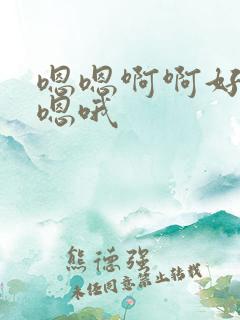 嗯嗯啊啊好
嗯哦
熊德强
未经同意禁止转载